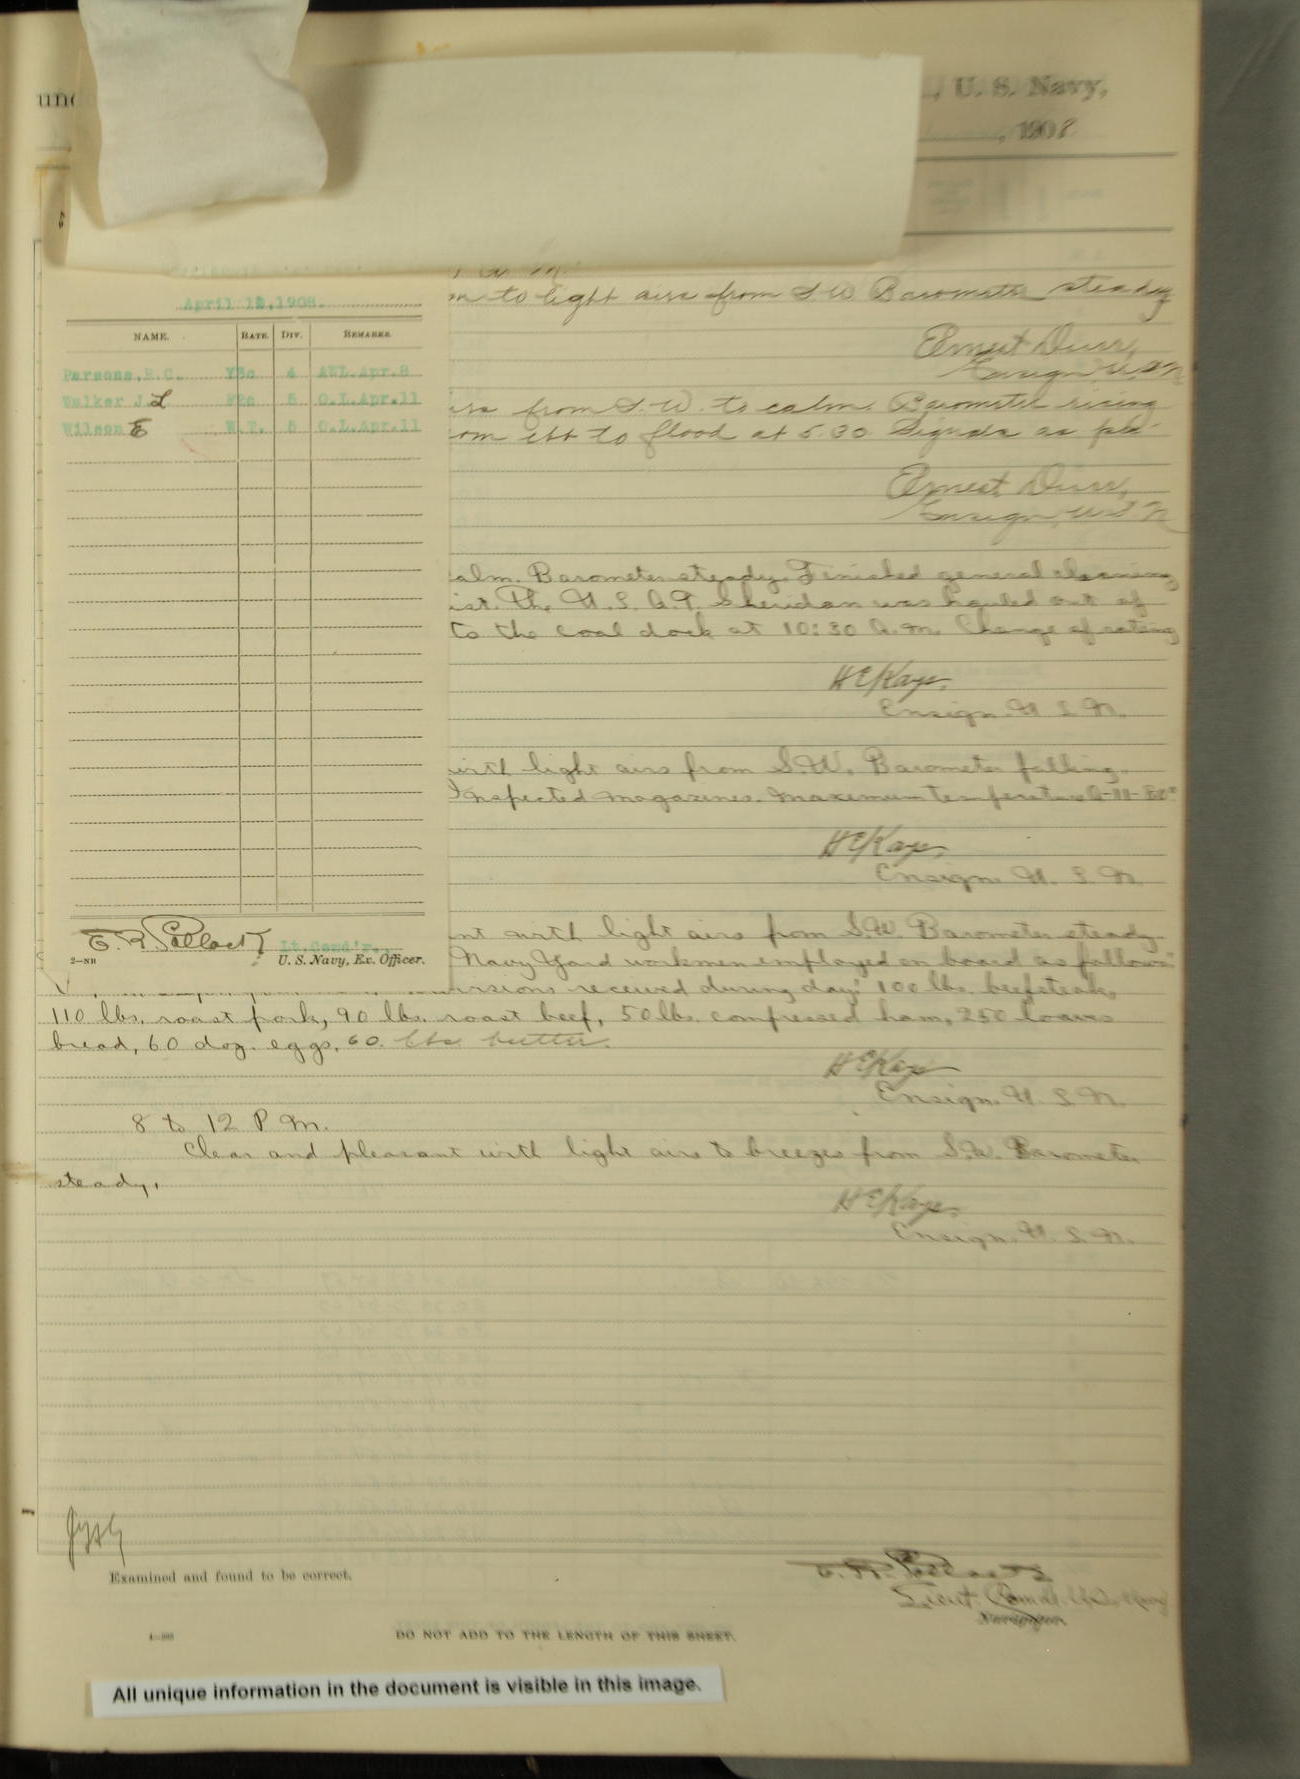 U. S. Navy,
, 1908
April 12, 1908.
NAME. RATE. DIV. REMARKS.
Parsons, E.C. Y3c 4 AWL.Apr.8
Walker J. L F2c 5 O.L.Apr.11
Wilson E W.T. 5 O.L.Apr.11
E. R. Pollock Lt.Comd'r.,
2—NH U. S. Navy, Ex. Officer.
to light airs from S.W. Barometer steady
Ernest Durr,
Ensign U.S.N
from S.W. to calm. Barometer rising
ebb to flood at 5.30 Signals as per
Ernest Durr,
Ensign, U.S.N
alm. Barometer steady. Finished general cleaning
ist. The U.S.A.T. Sheridan was hauled out of
to the coal dock at 10:30 A.m. Change of rating
H E Kays,
Ensign. U. S. N.
with light airs from S.W. Barometer falling.
Inspected magazines. Maximum temperature
H E Kays,
Ensign. U. S. N.
nt with light airs from S.W. Barometer steady.
Navy Yard workmen employed on board as follows
received during day: 100 lbs. beefsteak,
110 lbs. roast pork, 90 lbs. roast beef, 50 lbs. compressed ham, 250 loaves
bread, 60 doz. eggs. 60. lbs butter.
H E Kays
Ensign. U. S. N.
8 to 12 P m.
Clear and pleasant with light airs to breezes from S.W. Barometer
steady.
H E Kays.
Ensign. U. S. N.
Examined and found to be correct.
E. R. Pollock
Lieut. Comdr. U.S. Navy
Navigator.
DO NOT ADD TO THE LENGTH OF THIS SHEET.
All unique information in the document is visible in this image.